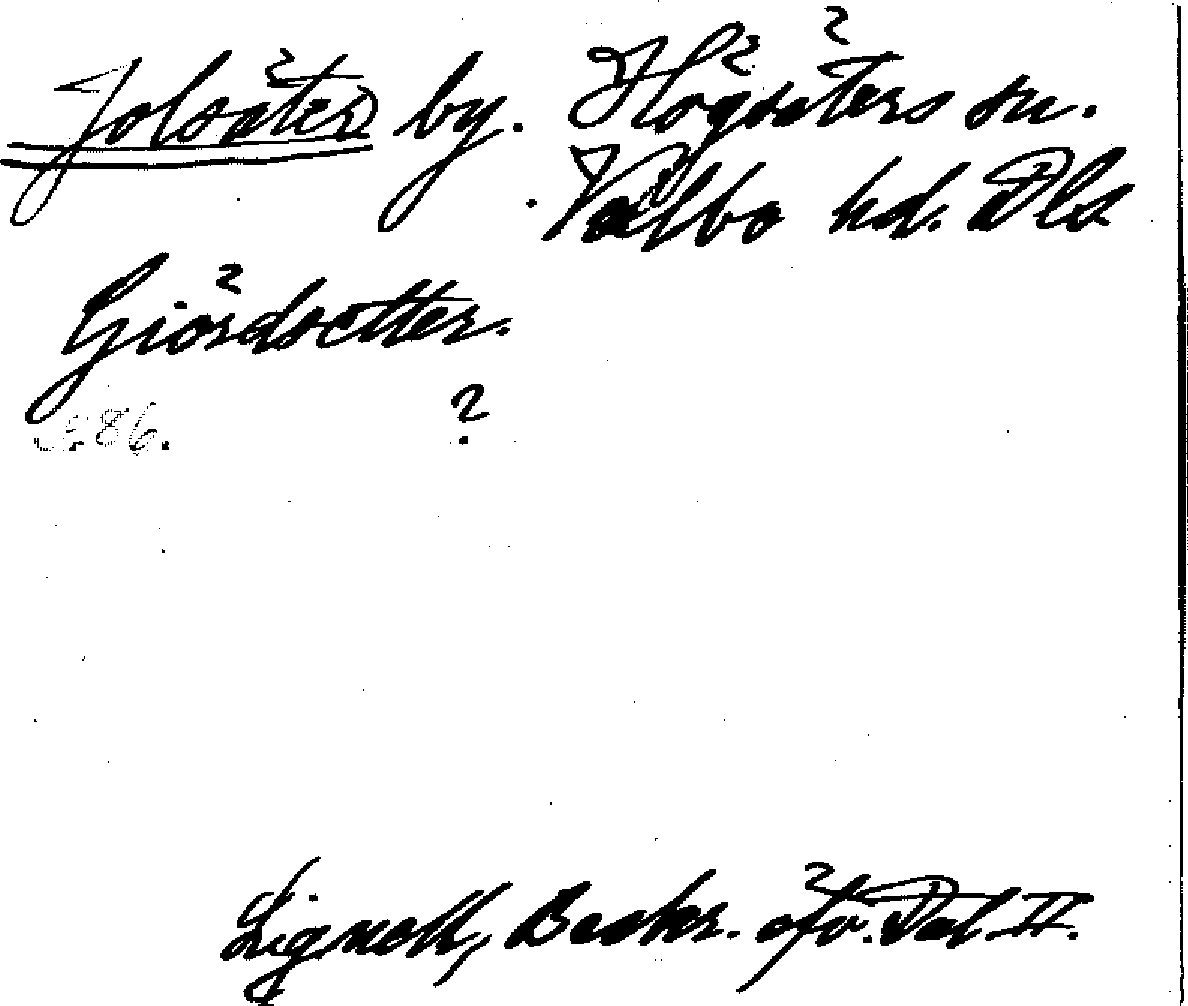 Jolsäter by. Högsäters sn.
Valbo hd. Dls
Giördsetter.
S. 86. ?
Lignell, Beskr. öfv. Dal. II.